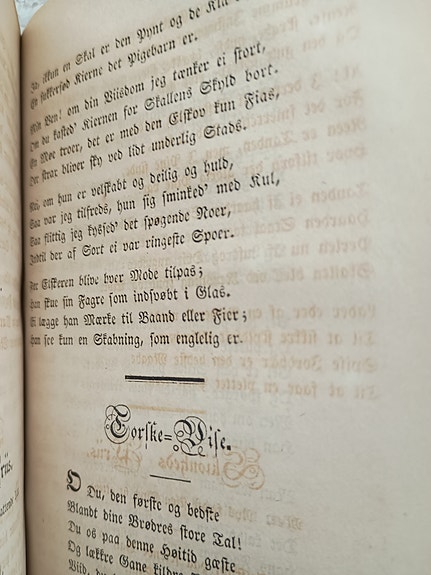 Ja, ikkun en Skal er den Pynt og de Kla
En sukkersød Kierne det Pigebarn er.
Min Ven! om din Viisdom jeg tænker ei stort,
Om du kasted' Kiernen for Skallens Skyld bort.
En Møe troer, det er med den Elskov kun Fias,
Der strax bliver sky ved lidt underlig Stads.
Nei, om hun er velskabt og deilig og huld,
Saa var jeg tilfreds, hun sig sminked' med Kul,
Saa flittig jeg kyssed' det spøgende Noer,
Indtil der af Sort ei var ringeste Spoer.
For Elskeren blive hver Mode tilpas;
Han skue sin Fagre som indsvøbt i Glas.
Ei lægge han Mærke til Baand eller Fier;
Han see kun en Skabning, som englelig er.
Torske=Vise.
O Du, den første og bedste
Blandt dine Brødres store Tal!
Du os paa denne Høitid gæste
Og lækkre Gane kildre